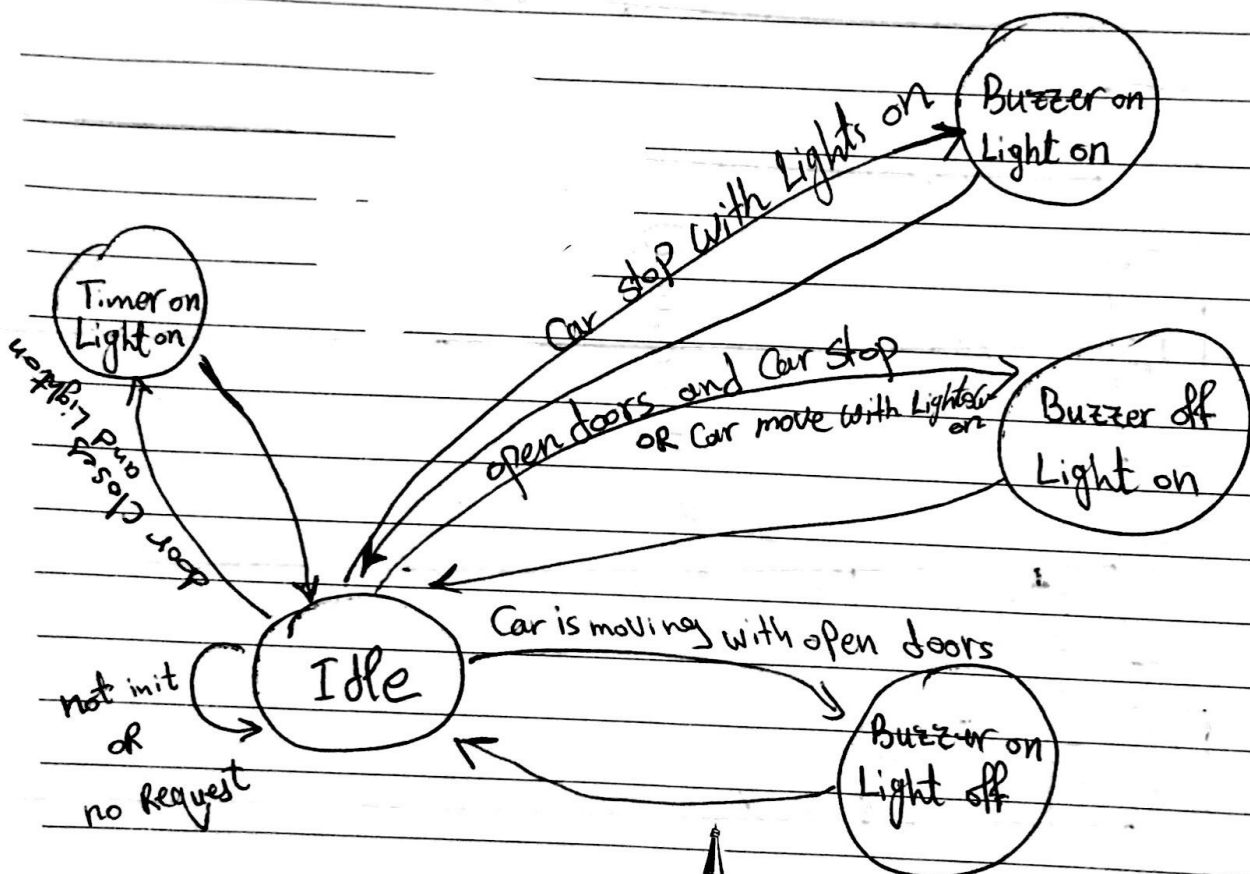 Buzzer on
Light on
Car stop with Lights on
Timer on
Light on
door closed
and Light on
open doors and Car stop
OR Car move with Lights
on
Buzzer off
Light on
Idle
not init
OR
no Request
Car is moving with open doors
Buzzer on
Light off